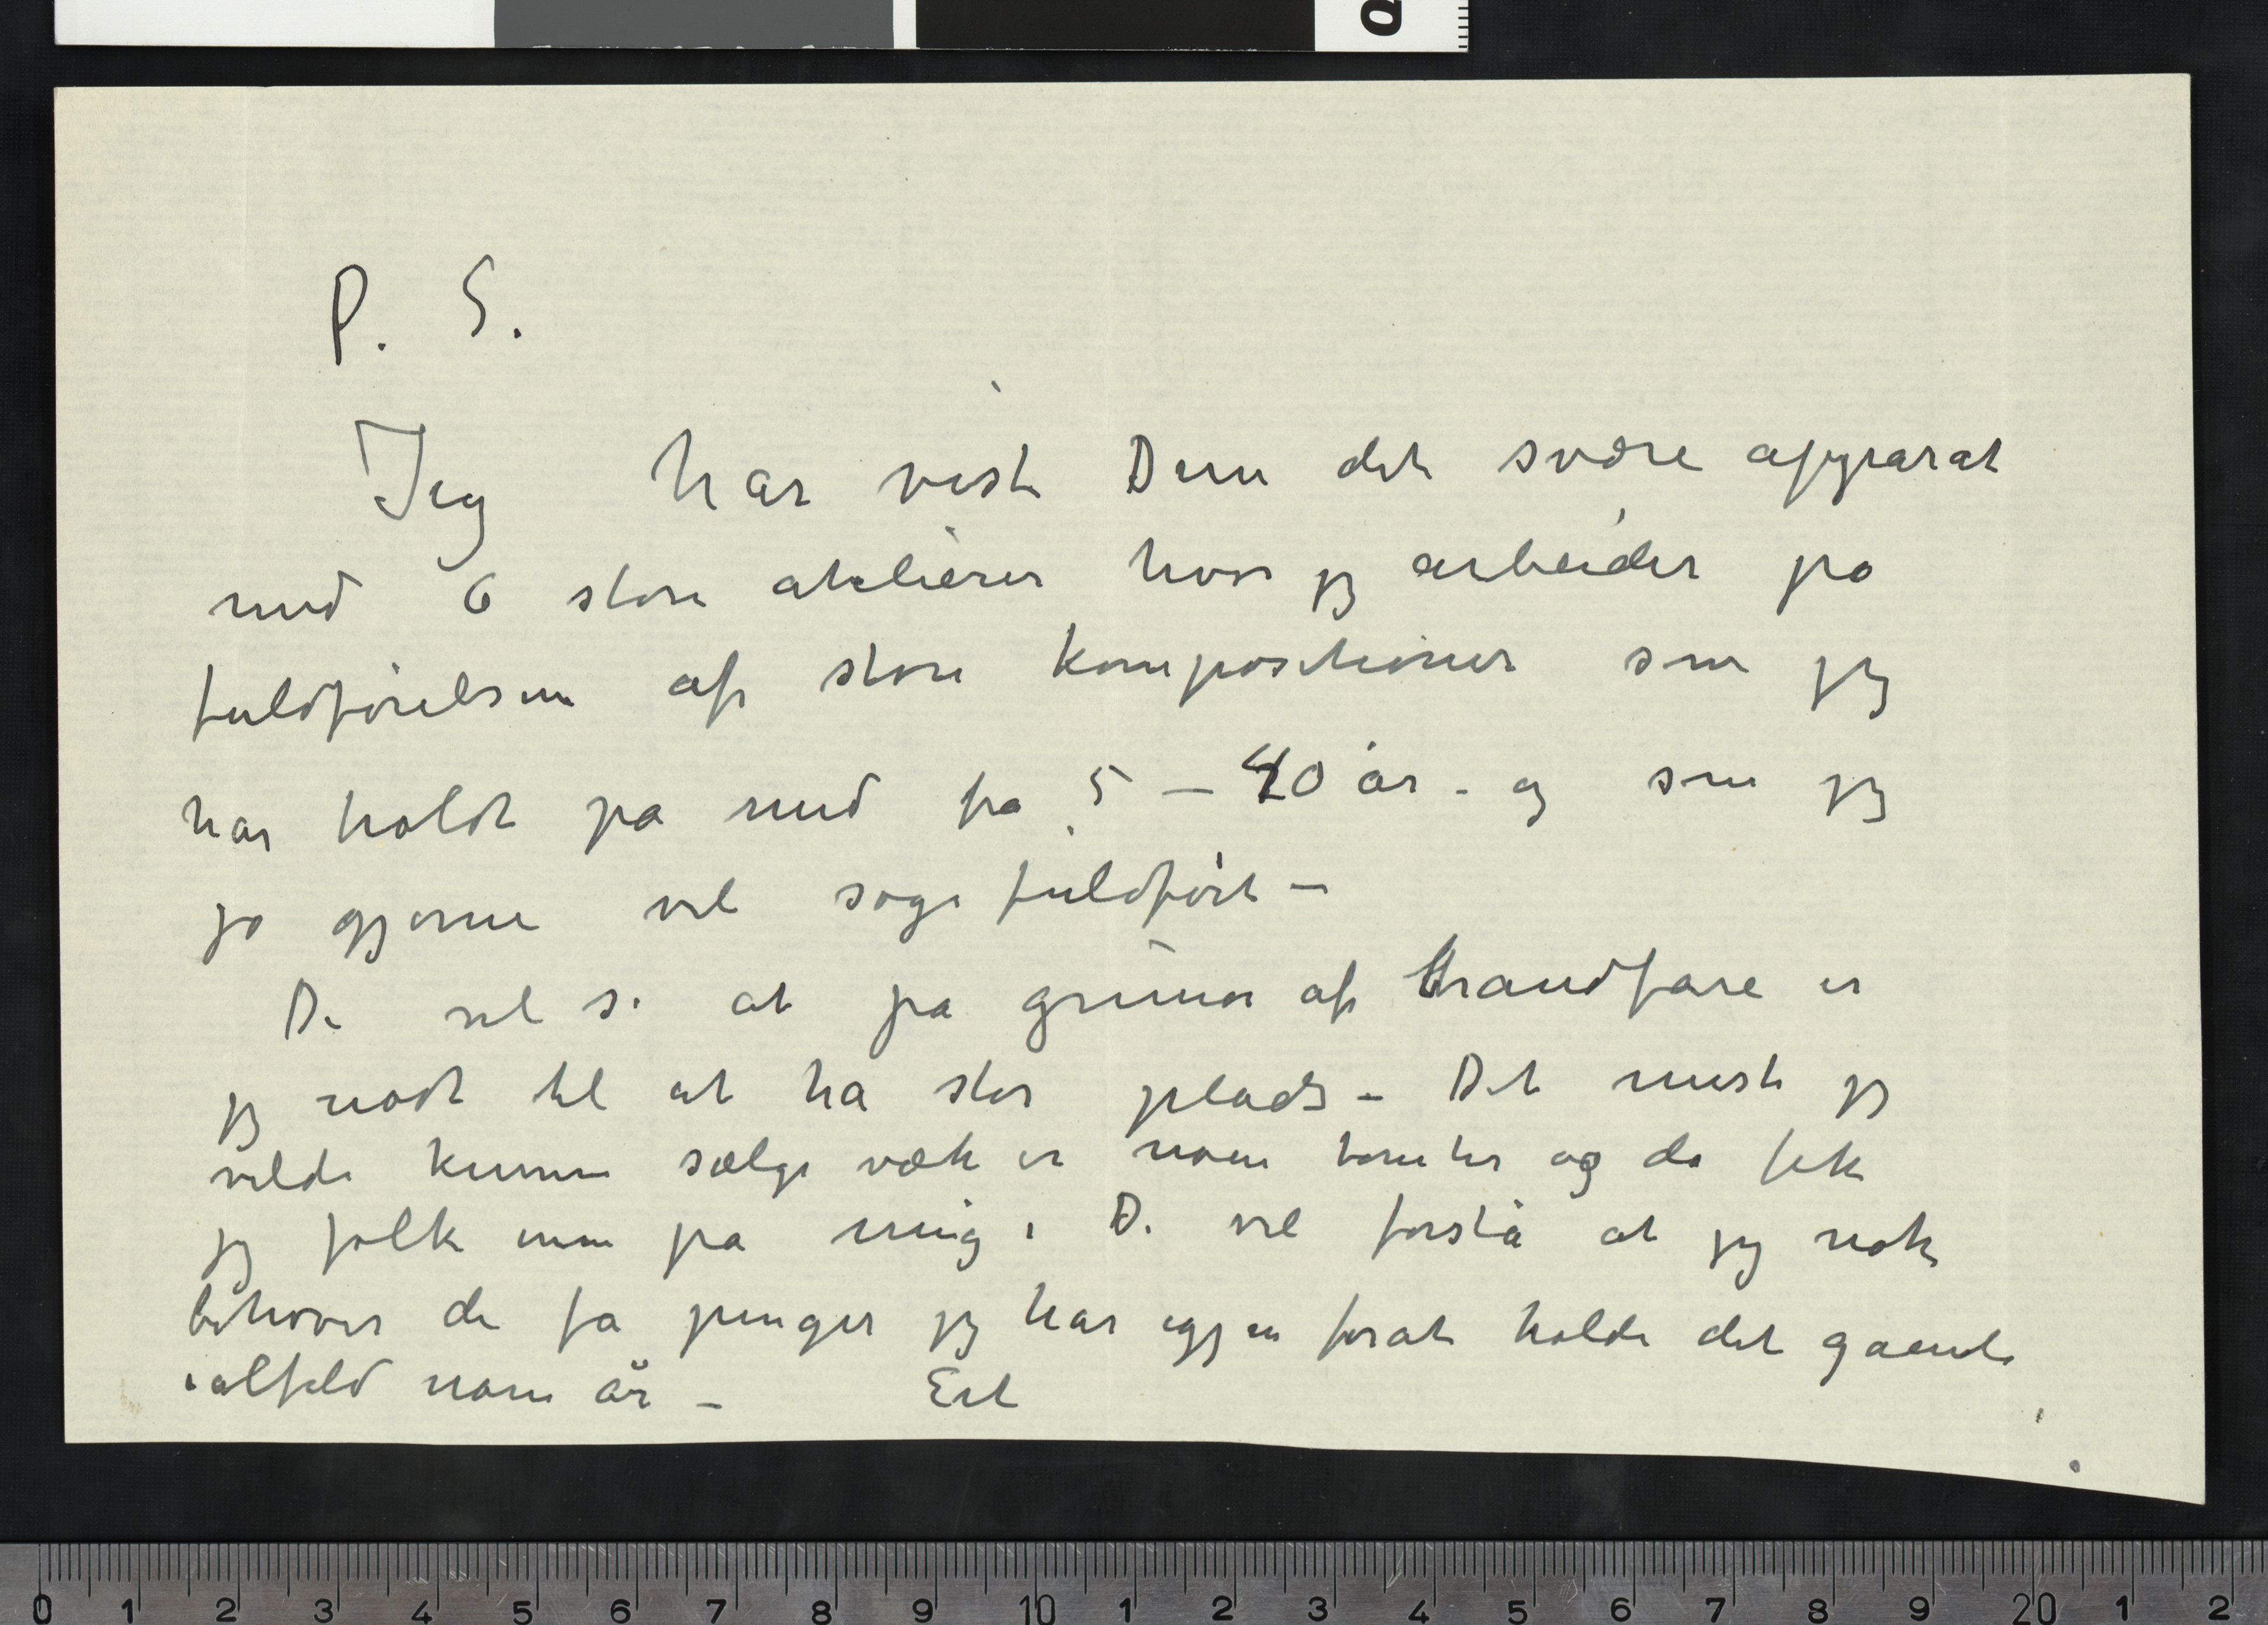 P. S.
Jeg har vist Dem det svære apparat
med 6 store atelierer hvor jeg arbeider på
fuldførelsen af store kompositioner som jeg
har holdt på med fra 5 – 40 år – og som jeg
jo gjerne vil søge fuldført –
De vil se at på grund af brandfare er
jeg nødt til at ha stor plads – Det meste jeg
vilde kunne sælge væk er noen tomter og da fik
jeg folk inn på mig. De vil forstå at jeg nok
behøver de få penger jeg har igjen forat holde det gående
ialfald noen år –